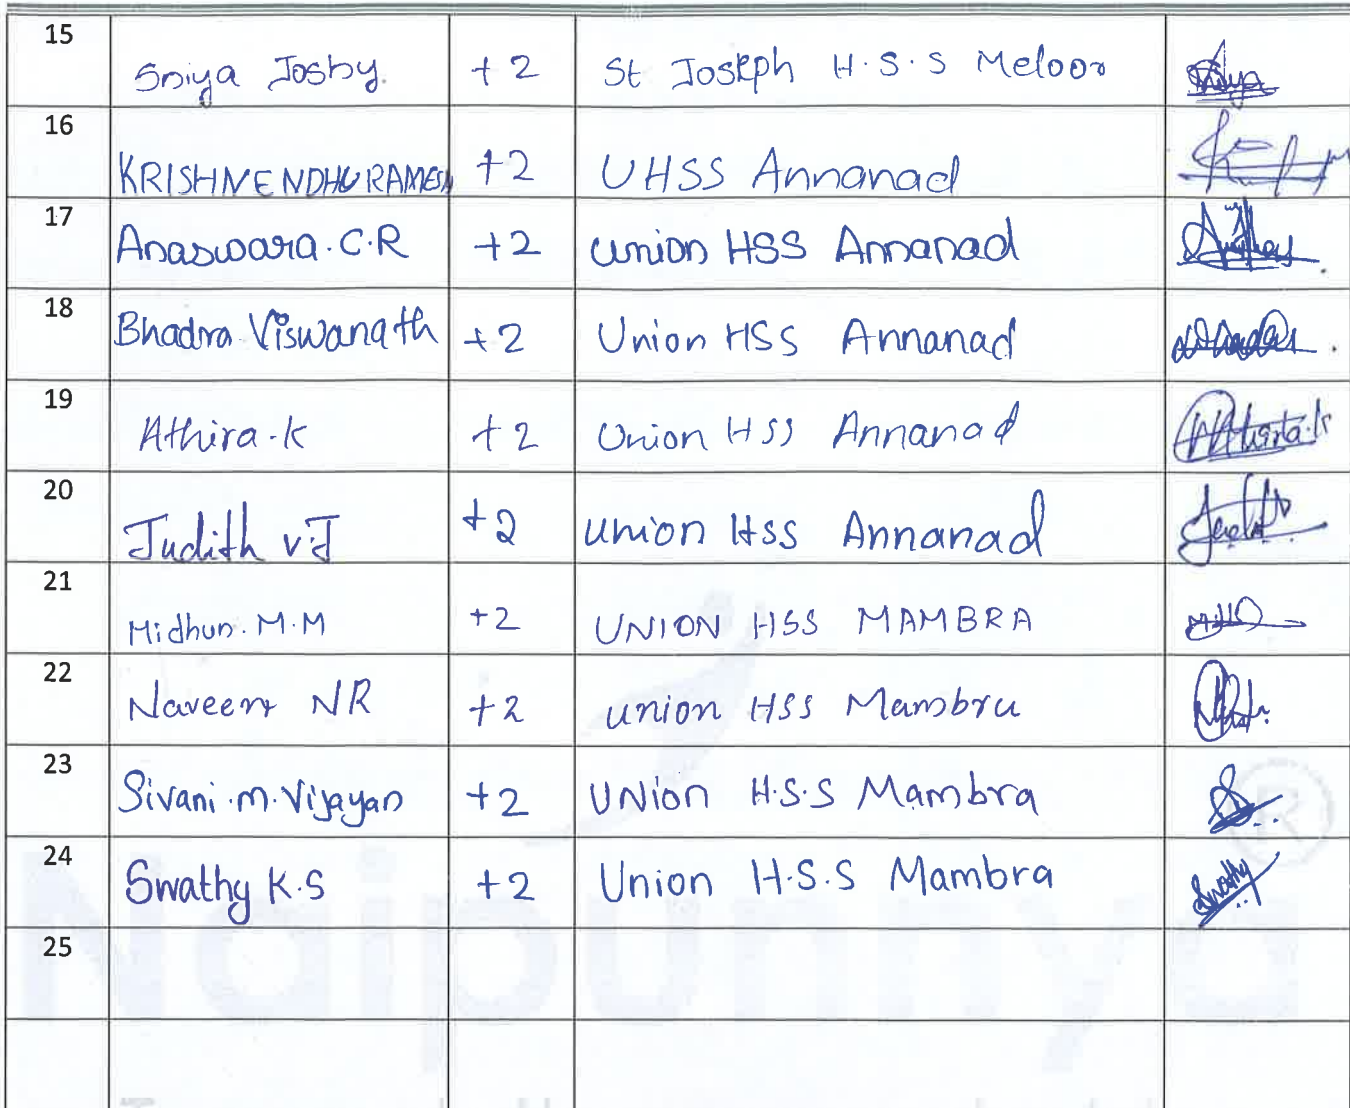 15 Sniya Josby. +2 St Joseph H.S.S Meloor
16 KRISHNENDHU RAMESH +2 UHSS Annanad
17 Anaswara.C.R +2 union HSS Annanad
18 Bhadra Viswanath +2 Union HSS Annanad
19 Athira.k +2 Union HSS Annanad Athira.k
20 Judith v.J +2 union Hss Annanad
21 Midhun.M.M +2 UNION HSS MAMBRA
22 Naveen NR +2 union HSS Mambra
23 Sivani.m.Vijayan +2 UNion H.S.S Mambra
24 Swathy K.S +2 Union H.S.S Mambra Swathy
25
Naipunnya ®